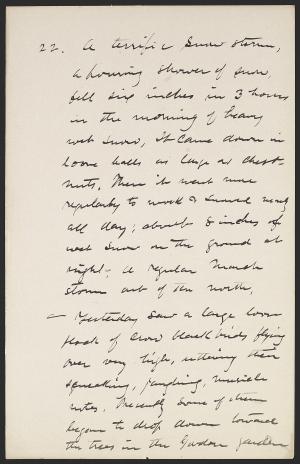 22. A terrific snow storm,
a pouring shower of snow,
fell six inches in 3 hours
in the morning of heavy
wet snow, it came down in
loose balls as large as chest-
nuts. Then it went more
regularly to work & snowed nearly
all day; about 8 inches of
wet snow on the ground at
night; a regular March
storm out of the north.
— Yesterday saw a large loose
flock of crow blackbirds flying
over very high, uttering their
squeaking, jangling, musical
notes. Presently some of them
began to drop down toward
the trees in the Gordon garden